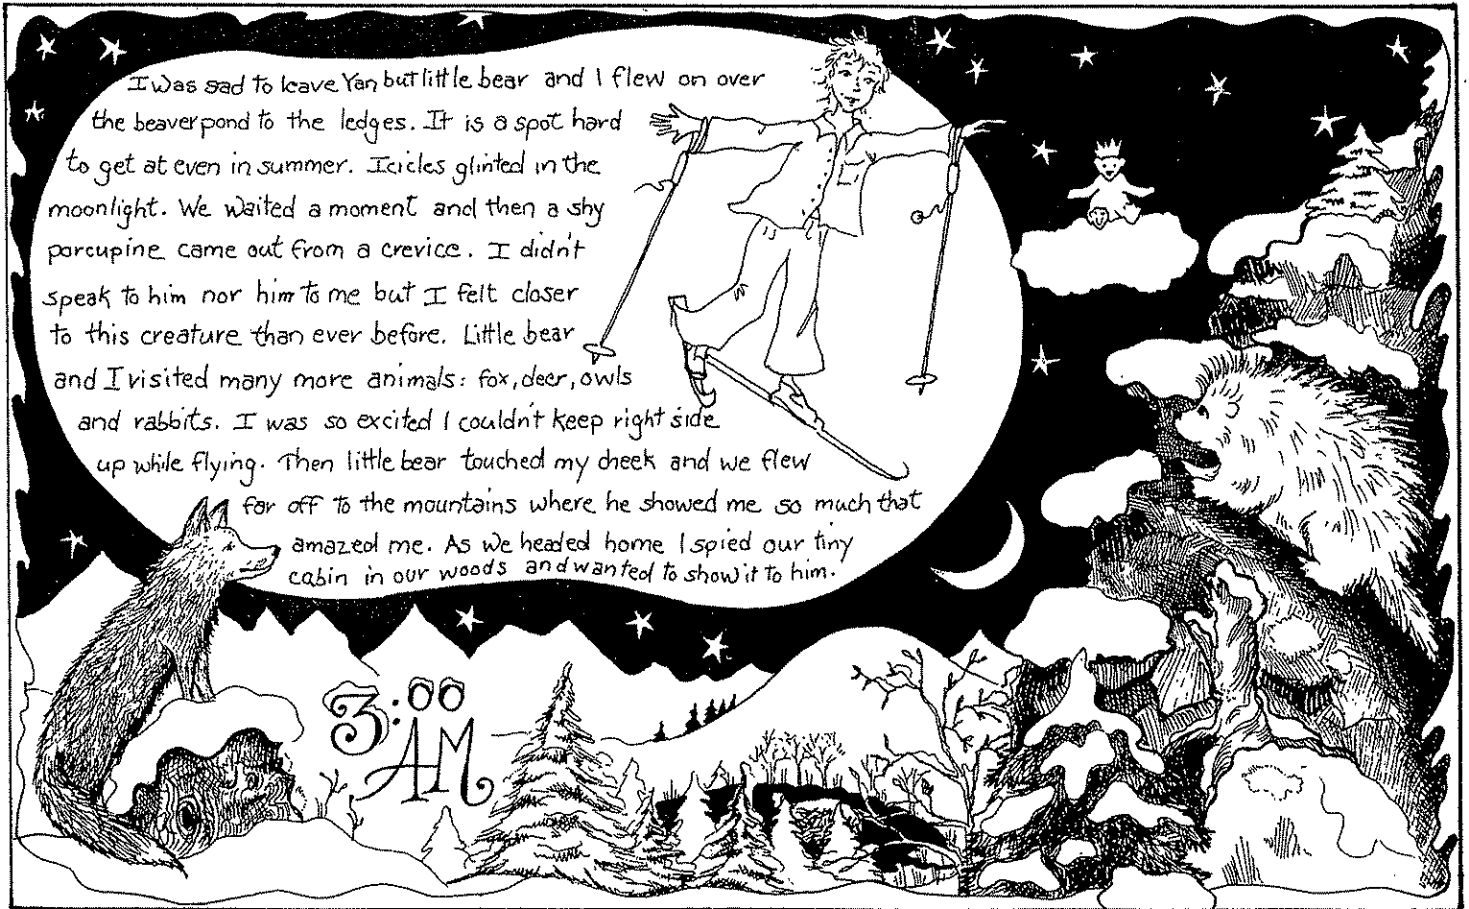 I was sad to leave Yan but little bear and I flew on over
the beaver pond to the ledges. It is a spot hard
to get at even in summer. Icicles glinted in the
moonlight. We waited a moment and then a shy
porcupine came out from a crevice. I didn't
speak to him nor him to me but I felt closer
to this creature than ever before. Little bear
and I visited many more animals: fox, deer, owls
and rabbits. I was so excited I couldn't keep right side
up while flying. Then little bear touched my cheek and we flew
far off to the mountains where he showed me so much that
amazed me. As we headed home I spied our tiny
cabin in our woods and wanted to show it to him.
3:00
AM